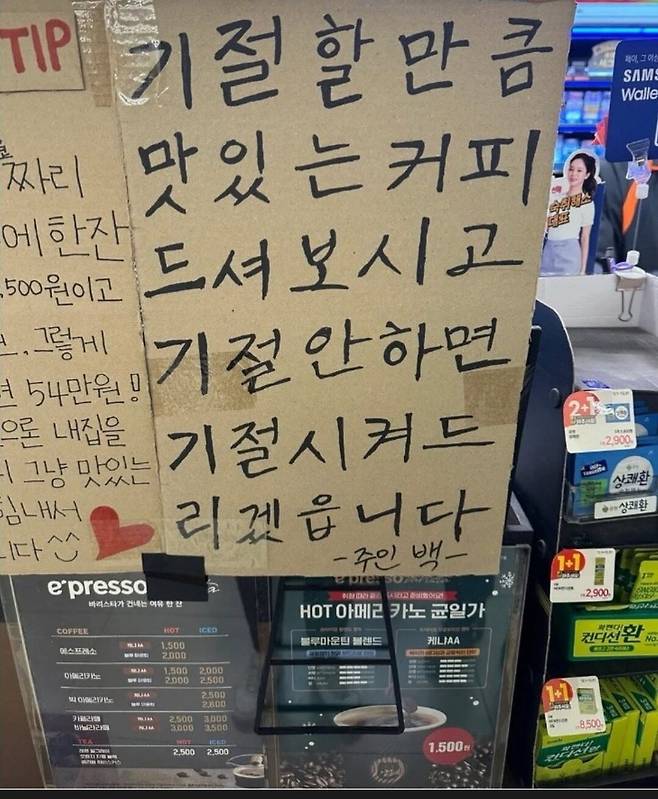 TIP
짜리
에 한잔
,500원이고
그렇게
54만원!
내집을
그냥 맛있는
힘내서
니다 ^^
기절할만큼
맛있는커피
드셔보시고
기절안하면
기절시켜드
리겠읍니다
-주인 백-
SAMS
Walle
숙취해소
대표
2+1
2,900원
상쾌환
상쾌환
1+1
2,900원
컨디션환
1+1
8,500원
컨디션환
e·presso
바리스타가 건네는 여유 한 잔
COFFEE HOT ICED
에스프레소 케냐AA 1,500
2,000
아메리카노 케냐AA 1,500 2,000
2,000 2,500
빅 아메리카노 케냐AA 2,500
2,600
카페라떼 케냐AA 2,500 3,000
바닐라라떼 케냐AA 3,000 3,500
TEA HOT ICED
2,500 2,500
HOT 아메리카노 균일가
블루마운틴 블렌드
케냐AA
1,500원